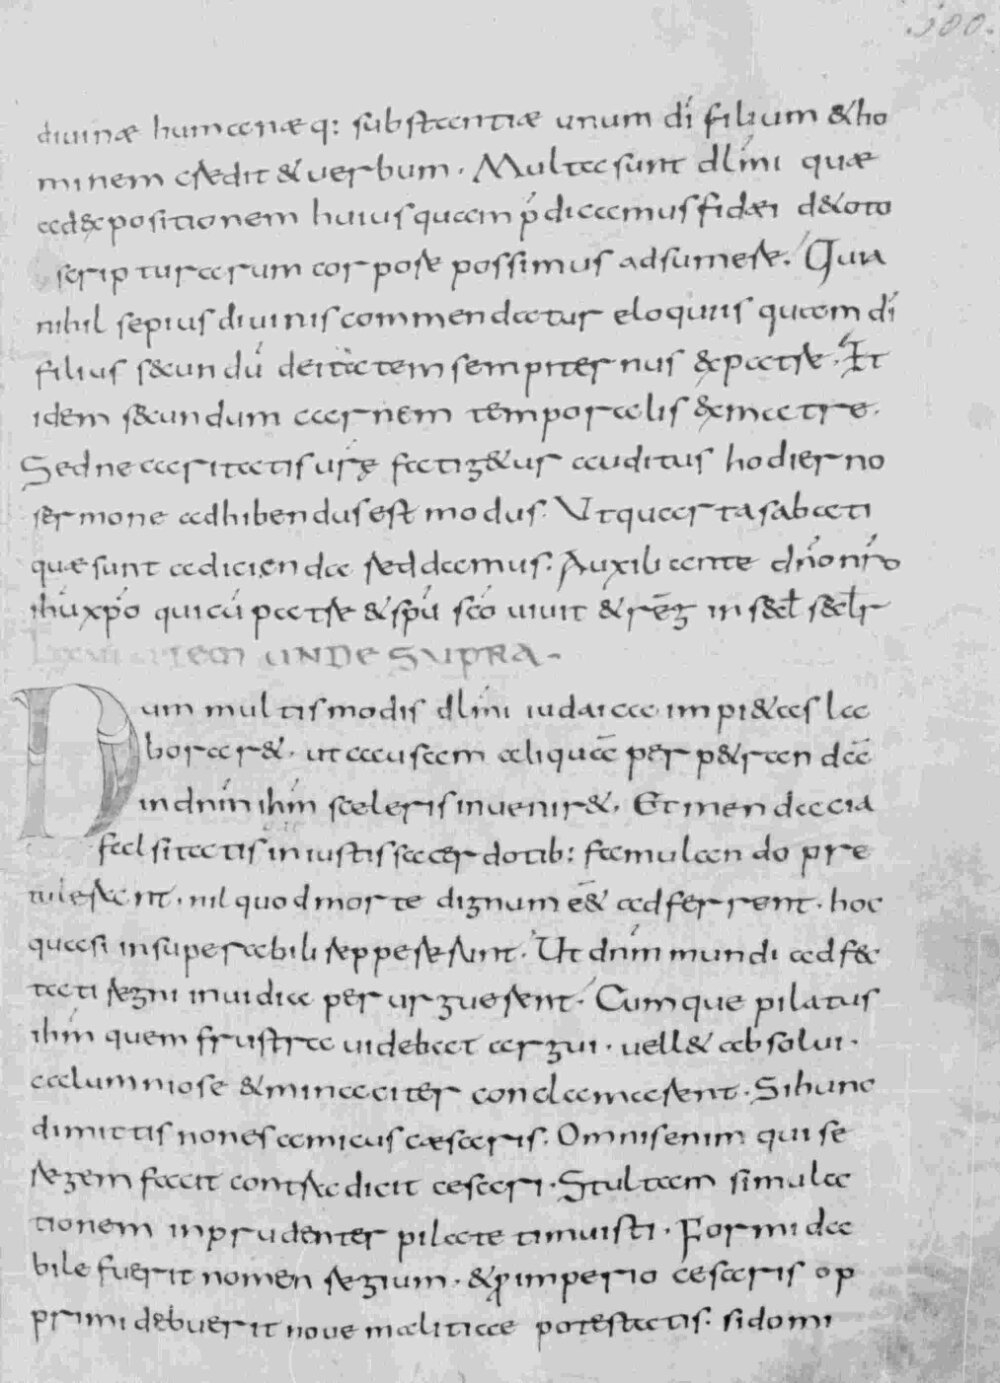 300.
diuinæ humanæq: substantiæ unum dī filium &ho
minem credit & uerbum. Multa sunt dlm̄i quæ
ad expositionem huius quam p̄dicamus fidæi d&oto
scripturarum corpore possimus adsumere. Quia
nihil sepius diuinis commendatur eloquiis quam dī
filius s&cundū deitatem sempiternus &patre. Et
idem s&cundum carnem temporalis &matre.
Sed ne caritatis uṙę fatig&ur auditus hodierno
sermone adhibendus est modus. Ut quartasabati
quæ sunt adicienda reddamus: Auxiliante dn̄o nr̄o
ihū xp̄o qui cū patre & spū scō uiuit & rēg in s&cl̄ s&cl̄r
ITEM UNDE SUPRA-
Dum multis modis dlm̄i iudaica impi&as la
borar&. ut causam aliquā per p&randā
in dnm̄ ihm̄ sceleris inuenir&. Et mendacia
falsitatis iniustis sacerdotib: famulando pre
tulerant. nil quod morte dignum ē& adferrent. hoc
quasi insuperabili reppererunt. Ut dnm̄ mundi adf&
tati regni inuidia perurguerent. Cumque pilatus
ihm̄ quem frustra uidebat argui. uell& absolui.
calumniose & minaciter conclamarent. Si hunc
dimittis non es amicus cæsaris. Omnis enim qui se
regem facit contradicit cesari. Stultam simula
tionem inprudenter pilate timuisti. Formida
bile fuerit nomen regium. & p̄ imperio cesaris op
primi debuerit noue malitiae potestatis. si domi